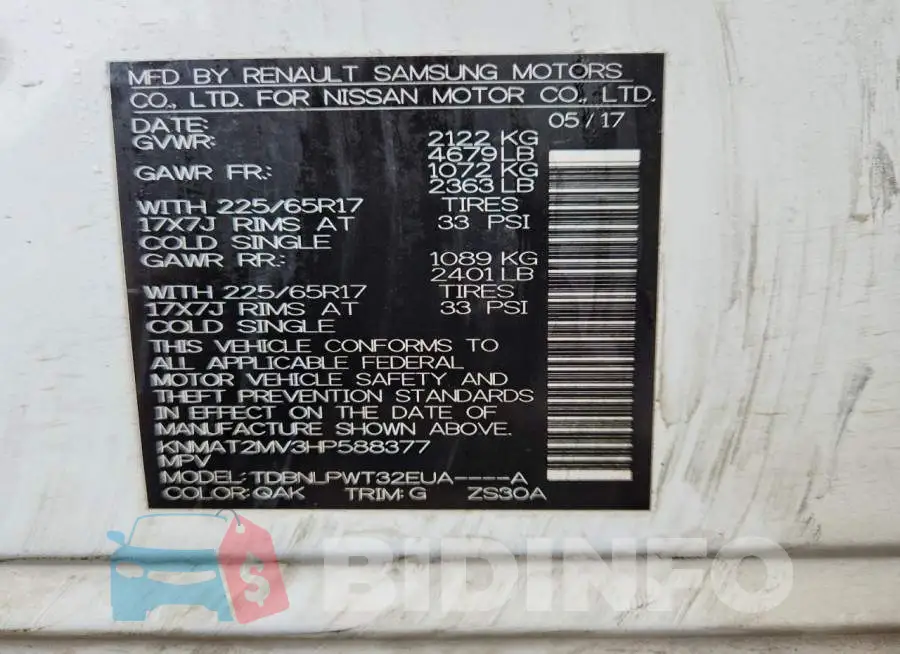 MFD BY RENAULT SAMSUNG MOTORS
CO., LTD. FOR NISSAN MOTOR CO., LTD.
DATE: 05/17
GVWR: 2122 KG
4679LB
GAWR FR.: 1072 KG
2363 LB
WITH 225/65R17 TIRES
17X7J RIMS AT 33 PSI
COLD SINGLE
GAWR RR.: 1089 KG
2401 LB
WITH 225/65R17 TIRES
17X7J RIMS AT 33 PSI
COLD SINGLE
THIS VEHICLE CONFORMS TO
ALL APPLICABLE FEDERAL
MOTOR VEHICLE SAFETY AND
THEFT PREVENTION STANDARDS
IN EFFECT ON THE DATE OF
MANUFACTURE SHOWN ABOVE.
KNMAT2MV3HP588377
MPV
MODEL: TDBNLPWT32EUA----A
COLOR: QAK TRIM: G ZS30A
$ BIDINFO